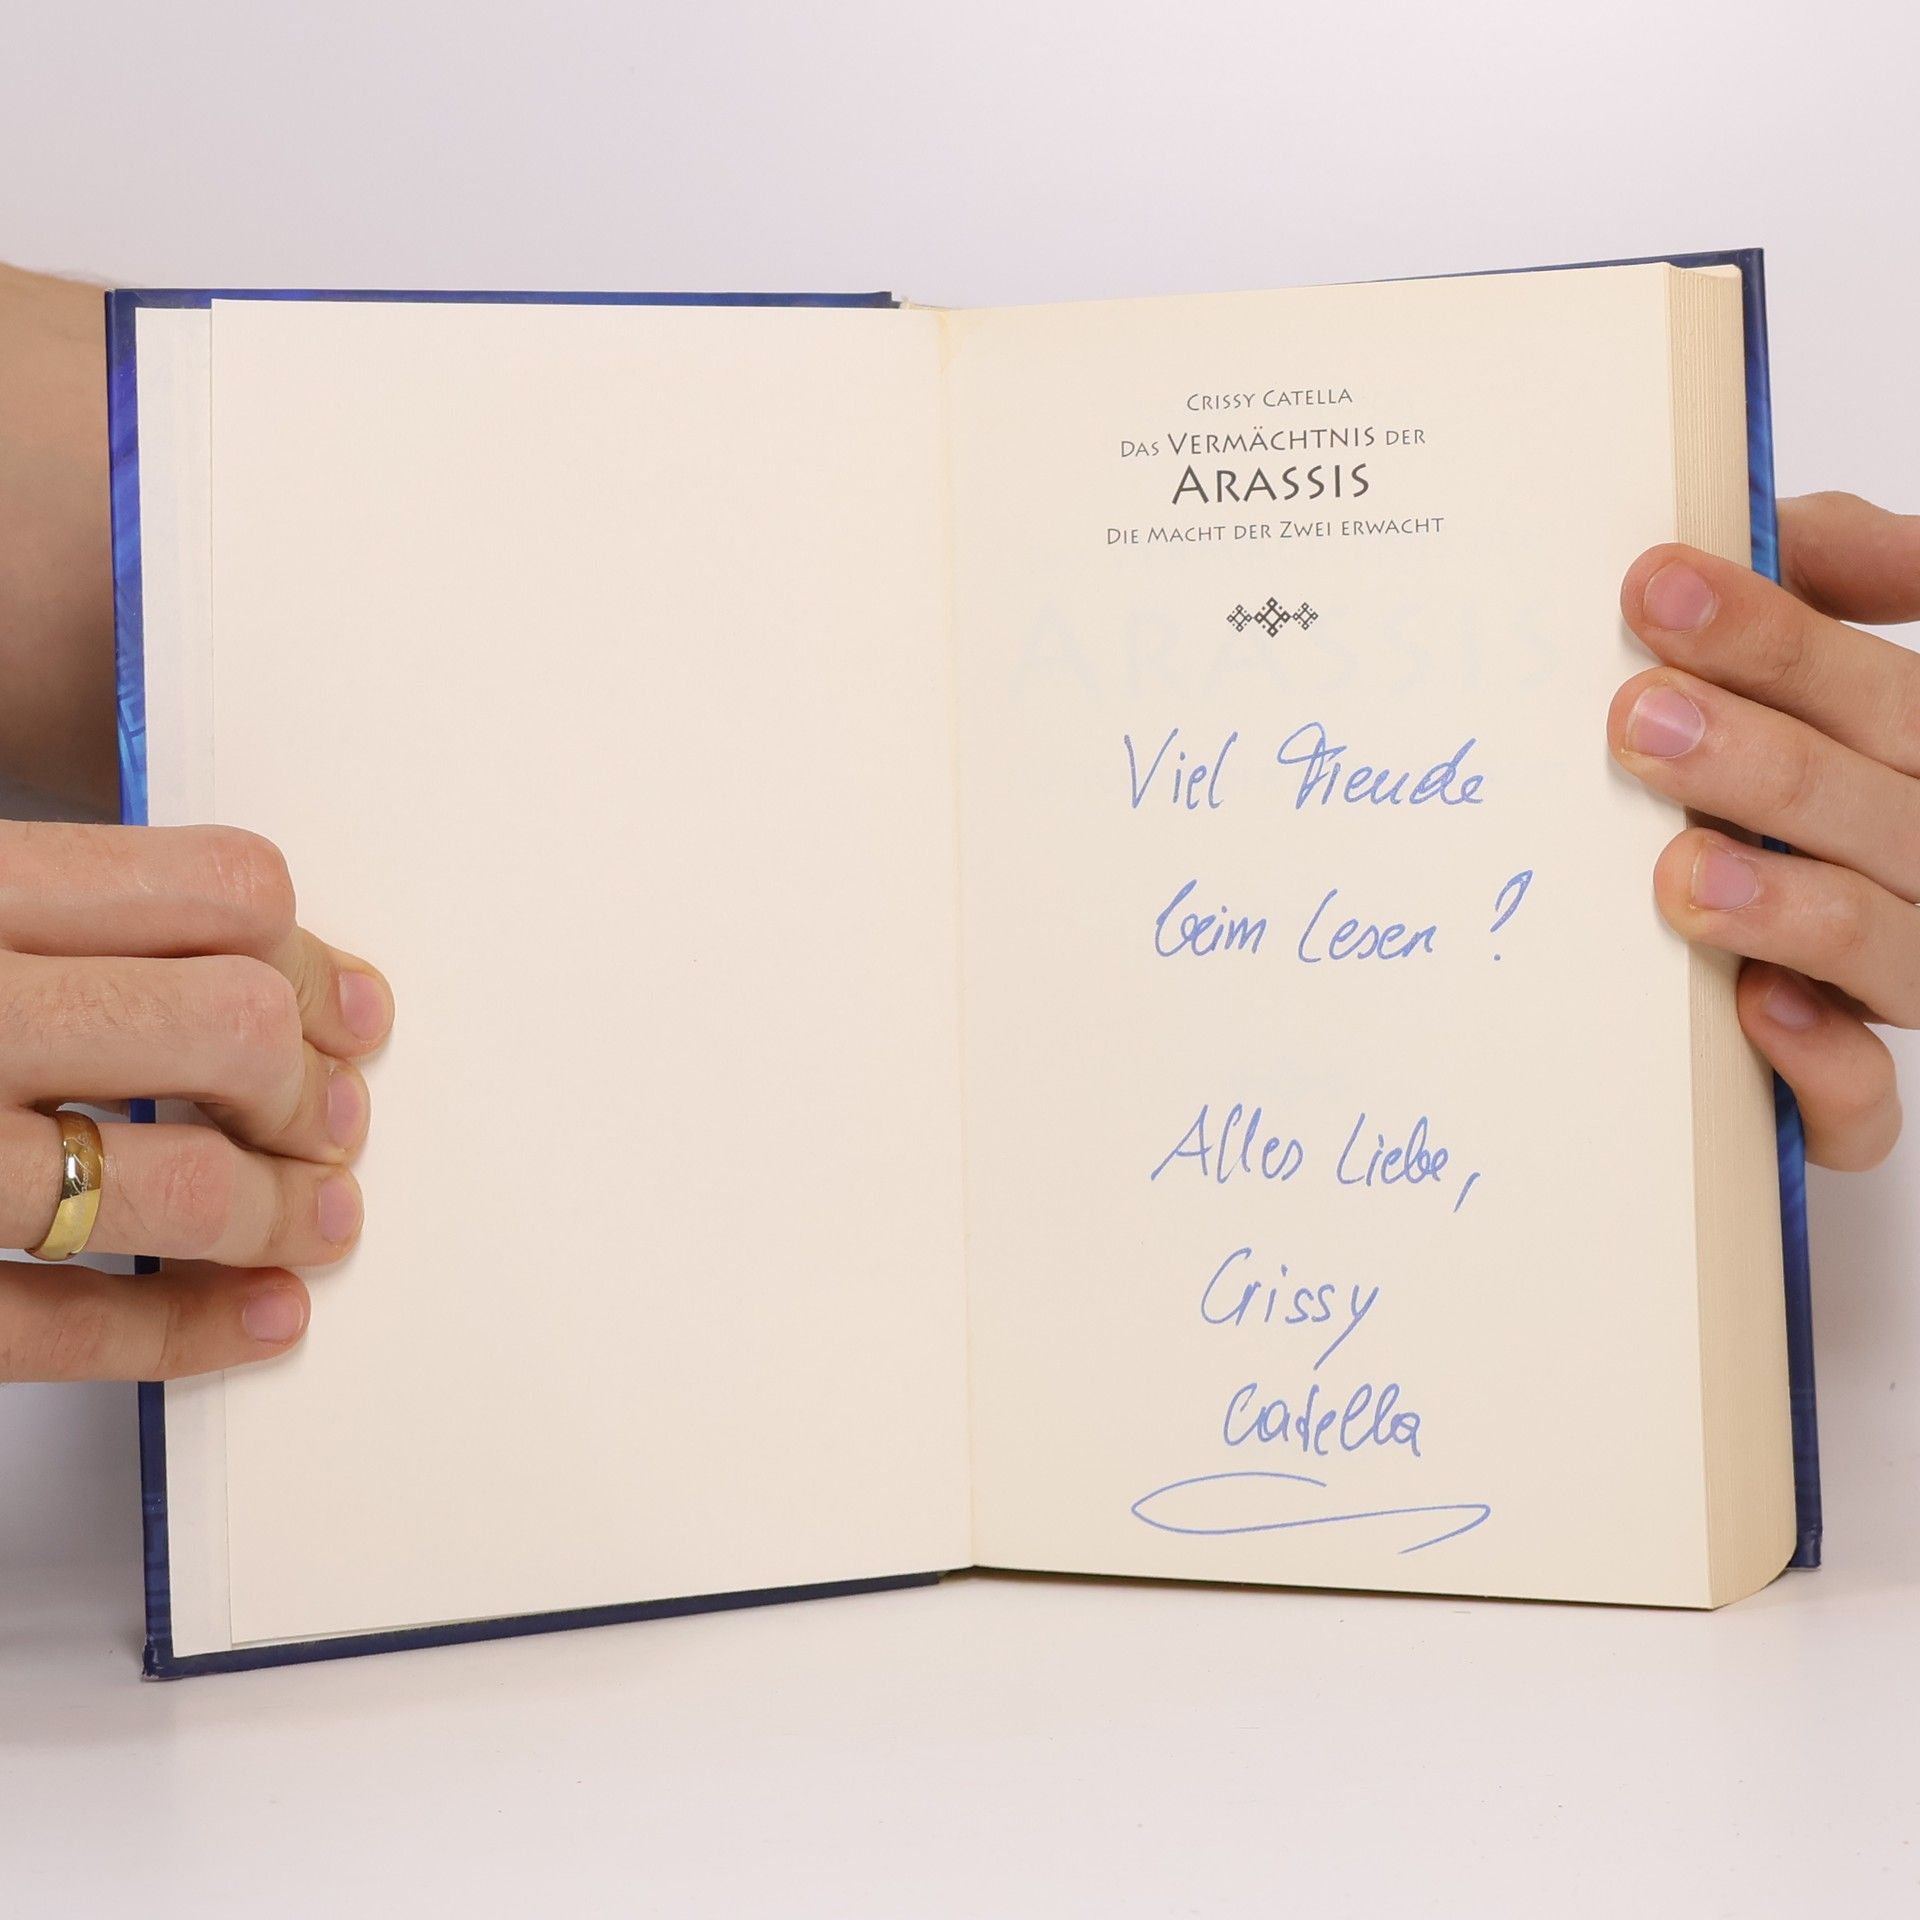 Crissy Catella
Das Vermächtnis der
Arassis
Die Macht der Zwei erwacht
Arassis
Viel Freude
beim Lesen!
Alles Liebe,
Crissy
Catella